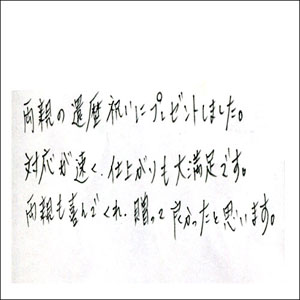 両親の還暦祝いにプレゼントしました。
対応が速く、仕上がりも大満足です。
両親も喜んでくれ、贈って良かったと思います。